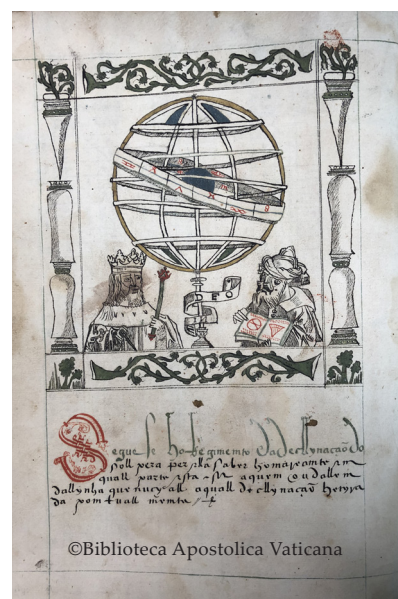 Segue se ho Regimento da decllynação do
soll pera per ella saber ho mareante em
quall parte esta se aquem ou dallem
da llynha que nucyall a quall decllynação
da pom tuall memte
©Biblioteca Apostolica Vaticana